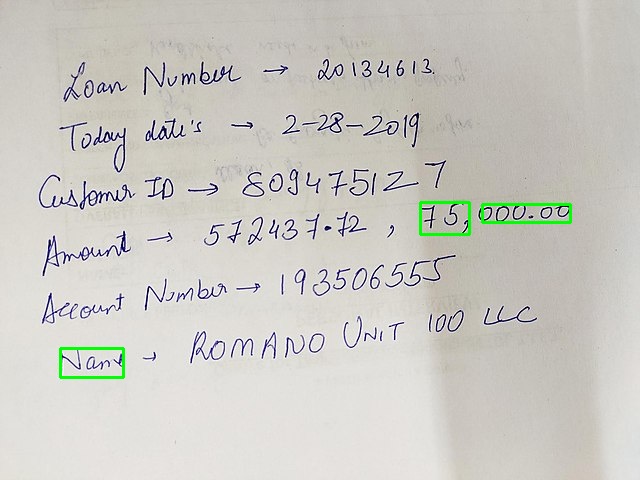 Loan Number → 20134613
Today date's → 2-28-2019
Customer ID → 809475127
Amount → 572437.72 , 75,000.00
Account Number → 193506555
Name → ROMANO UNIT 100 LLC